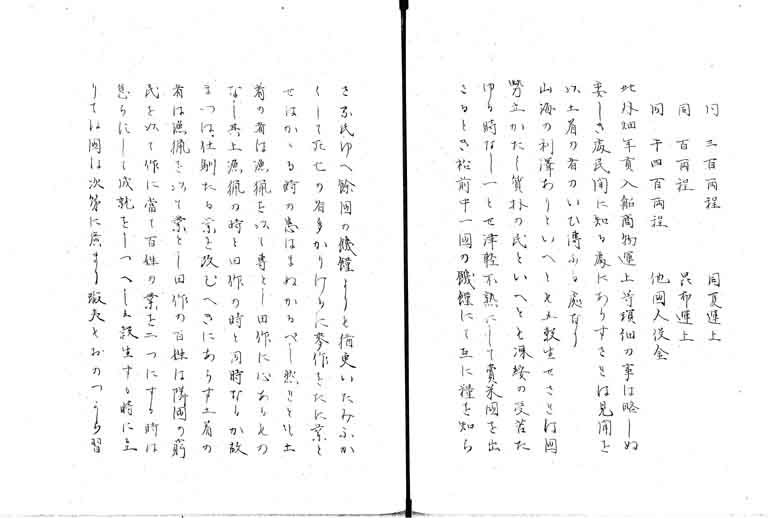 同 三百両程 同夏運上
同 百両程 昆布運上
同 千四百両程 他国人役金
此外畑年貢入船商物運上等項細の事は略しぬ
委しき処民間に知る処にあらすさとは見聞を
以土着の者のいひ傳ふる処なり
山海の利澤ありといへとも五穀生せされは国
勞立かたし質朴の民といへとも凍餒の受苦た
ゆる時なし一とせ津軽不熟にして賣米国を出
さるとき松前中一国の饑饉にて互に糧を知ら
さる民ゆへ餘国の饑饉よりも猶更いたみふか
くして亡せの者多かりけるに麥作をたに業と
せはかゝる時の愁はまぬかるへし然れとも土
着の者は漁猟を以て専とし田作に心あるもの
なし其上漁猟の時と田作の時と同時なるか故
まつは仕馴たる業を改むへきにあらす土着の
者は漁猟を以て業とし田作の百姓は隣国の窮
民を以て作に當て百姓の業を二つにする時は
忽ちにして成就をしつへし五穀生する時に至
りては国は次第に広まり販夫もおのつから習